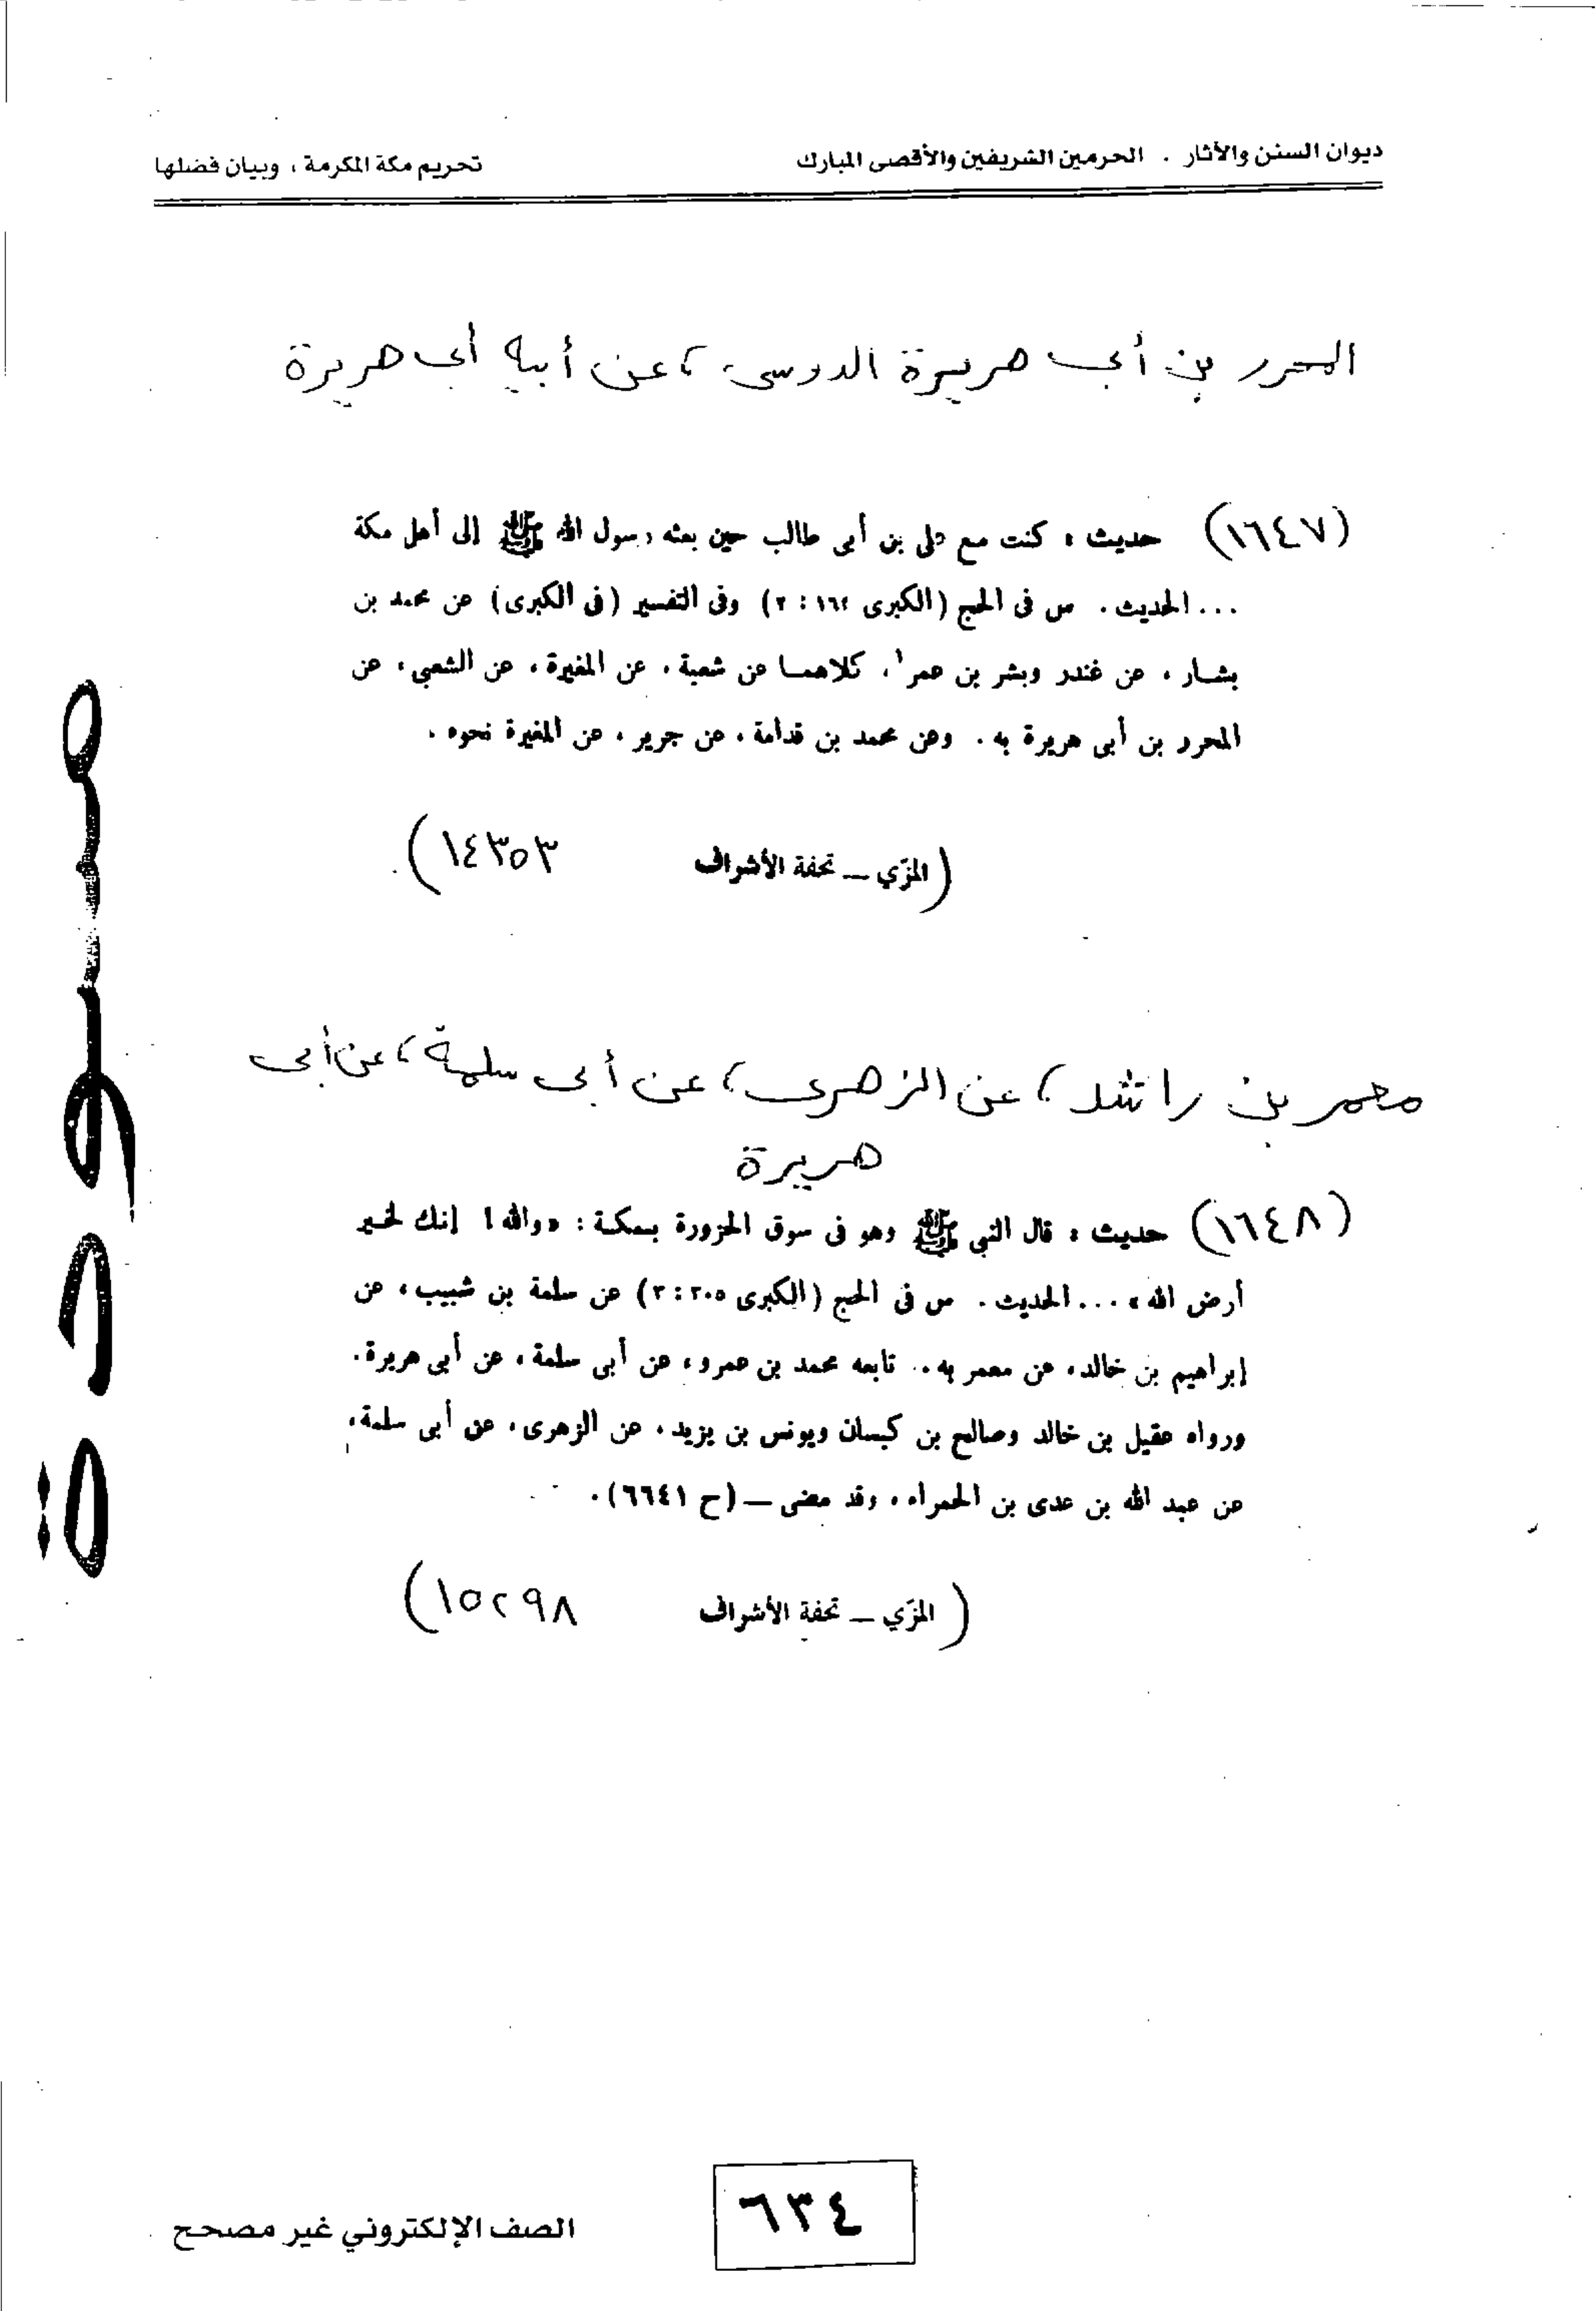 ديوان السنن والأثار . الحرمين الشريفين والأقصى المبارك
تحريم مكة المكرمة ، وبيان فضلها
المحرر بن أبى هريرة الدوسى ، عن أبيه أبى هريرة
(١٦٤٧) حديث : كنت مع على بن أبى طالب حين بعثه رسول الله ﷺ إلى أهل مكة
... الحديث . س فى الحج (الكبرى ١٦٢ : ٢) وفى التفسير (فى الكبرى) عن محمد بن
بشار ، عن غندر وبشر بن عمر١، كلاهما عن شعبة ، عن المغيرة ، عن الشعبي ، عن
المحرر بن أبى هريرة به . وعن محمد بن قدامة ، عن جرير ، عن المغيرة نحوه .
(المزّي — تحفة الأشراف ١٤٣٥٣)
معمر بن راشد ، عن الزهرى ، عن أبى سلمة ، عن أبى
هريرة
(١٦٤٨) حديث : قال النبي ﷺ وهو فى سوق الحزورة بمكة : «والله ! إنك لخير
أرض الله» ... الحديث . س فى الحج (الكبرى ٢٠٥ : ٢) عن سلمة بن شبيب ، عن
إبراهيم بن خالد، عن معمر به . تابعه محمد بن عمرو ، عن أبى سلمة ، عن أبى هريرة .
ورواه عقيل بن خالد وصالح بن كيسان ويونس بن يزيد ، عن الزهرى ، عن أبى سلمة ،
عن عبد الله بن عدى بن الحمراء ، وقد مضى — (ح ٦٦٤١) .
(المزّي — تحفة الأشراف ١٥٢٩٨)
مسودة
٦٣٤
الصف الإلكتروني غير مصحح